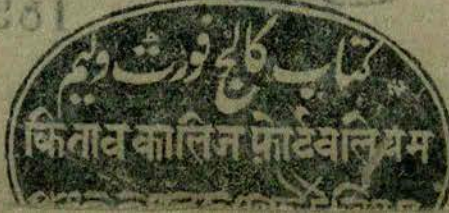 381
کتاب کالج فورٹ ولیم
किताब कालिज फ़ोर्टवलियम